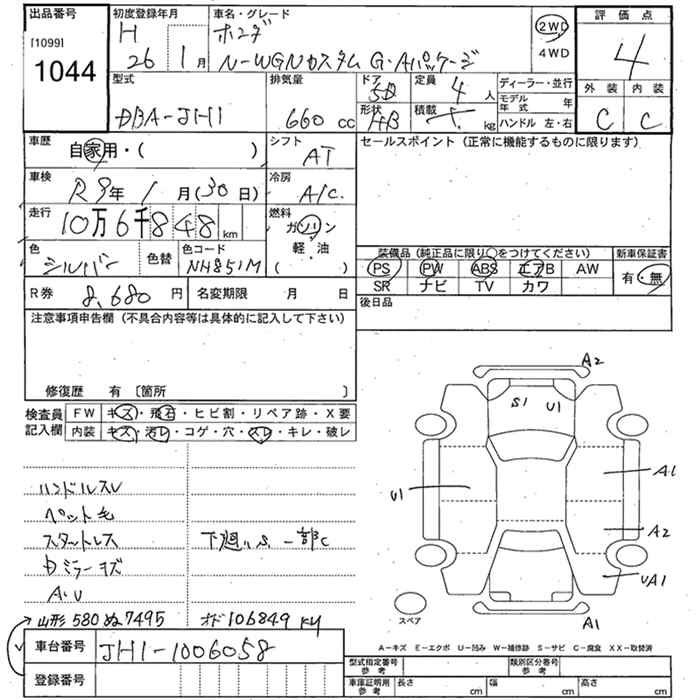 出品番号 初度登録年月 車名・グレード 評価点
[1099] H ホンダ 2WD 4
1044 26 1月 N-WGNカスタム G・Aパッケージ 4WD
型式 排気量 ドア 定員 ディーラー・並行 外装 内装
DBA-JH1 660cc 5D 4人 モデル年式 年 C C
形状 積載 ハンドル 左・右
HB kg
車歴 自家用・( ) シフト AT セールスポイント (正常に機能するものに限ります)
車検 R9年1月(30日) 冷房 A/C
走行 10万6千848km 燃料 ガソリン 軽・油 ( )
色 シルバー 色替 色コード NH851M
装備品(純正品に限り○をつけてください) 新車保証書
PS PW ABS エアB AW 有・無
SR ナビ TV カワ
R券 8,680円 名変期限 月 日 後日品
注意事項申告欄(不具合内容等は具体的に記入して下さい)
修復歴 有 〔箇所 〕
検査員記入欄 FW キズ・飛石・ヒビ割・リペア跡・X要
内装 キズ・汚レ・コゲ・穴・スレ・キレ・破レ
ハンドルスレ
ペット毛
スタットレス 下廻りS 一部C
Dミラーキズ
A.U
山形 580 ぬ 7495 オド 106849 KM
車台番号 JH1-1006058
登録番号
A2
S1 U1
U1 A1
A2
UA1
スペア A1
A-キズ E-エクボ U-凹み W-補修跡 S-サビ C-腐食 XX-取替済
型式指定番号 参考 類別区分番号 参考
車庫証明用 参考 長さ cm 幅 cm 高さ cm